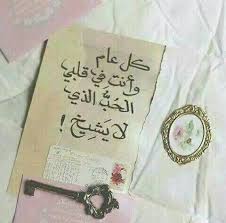 كل عام
وأنت في قلبي
الحبّ الذي
لا يشيخ !